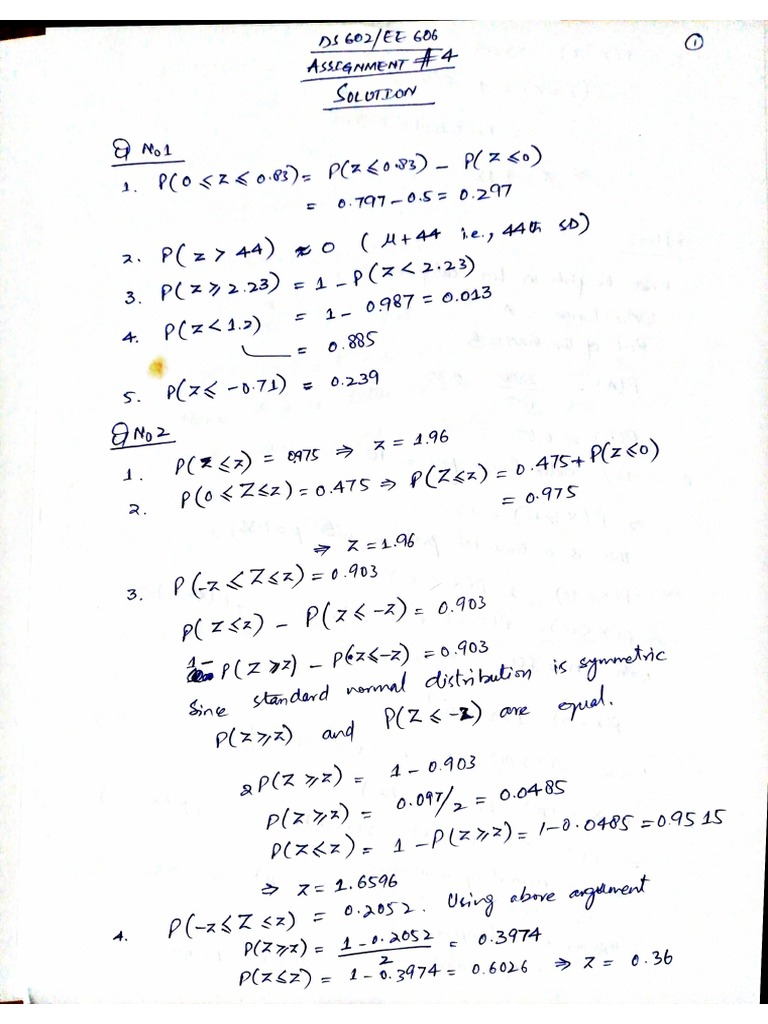 DS 602/EE 606
ASSIGNMENT #4
SOLUTION
1
Q No1
1. P(0 ⩽ Z ⩽ 0.83) = P(Z ⩽ 0.83) − P(Z ⩽ 0)
= 0.797 − 0.5 = 0.297
2. P(Z > 44) ≈ 0 (μ + 44 i.e., 44th SD)
3. P(Z ⩾ 2.23) = 1 − P(Z < 2.23)
= 1 − 0.987 = 0.013
4. P(Z < 1.2)
= 0.885
5. P(Z ⩽ −0.71) = 0.239
Q No2
1. P(Z ⩽ z) = 0.975 ⇒ z = 1.96
2. P(0 ⩽ Z ⩽ z) = 0.475 ⇒ P(Z ⩽ z) = 0.475 + P(Z ⩽ 0)
= 0.975
⇒ z = 1.96
3. P(−z ⩽ Z ⩽ z) = 0.903
P(Z ⩽ z) − P(Z ⩽ −z) = 0.903
1 − P(Z ⩾ z) − P(Z ⩽ −z) = 0.903
Since standard normal distribution is symmetric
P(Z ⩾ z) and P(Z ⩽ −z) are equal.
2P(Z ⩾ z) = 1 − 0.903
P(Z ⩾ z) = 0.097/2 = 0.0485
P(Z ⩽ z) = 1 − P(Z ⩾ z) = 1 − 0.0485 = 0.9515
⇒ z = 1.6596
4. P(−z ⩽ Z ⩽ z) = 0.2052. Using above argument
P(Z ⩾ z) = (1 − 0.2052)/2 = 0.3974
P(Z ⩽ z) = 1 − 0.3974 = 0.6026 ⇒ z = 0.36